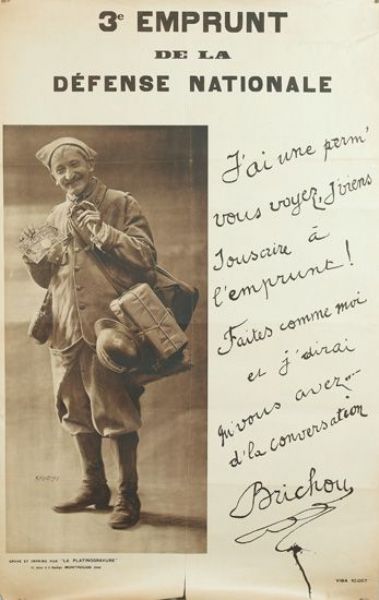 3e EMPRUNT
DE LA
DÉFENSE NATIONALE
J'ai une perm'
vous voyez, J'viens
Souscrire à
l'emprunt!
Faites comme moi
et j'dirai
qu'vous avez...
d'la conversation
Brichou
GRAVÉ ET IMPRIMÉ PAR "LA PLATINOGRAVURE"
MONTROUGE
VISA